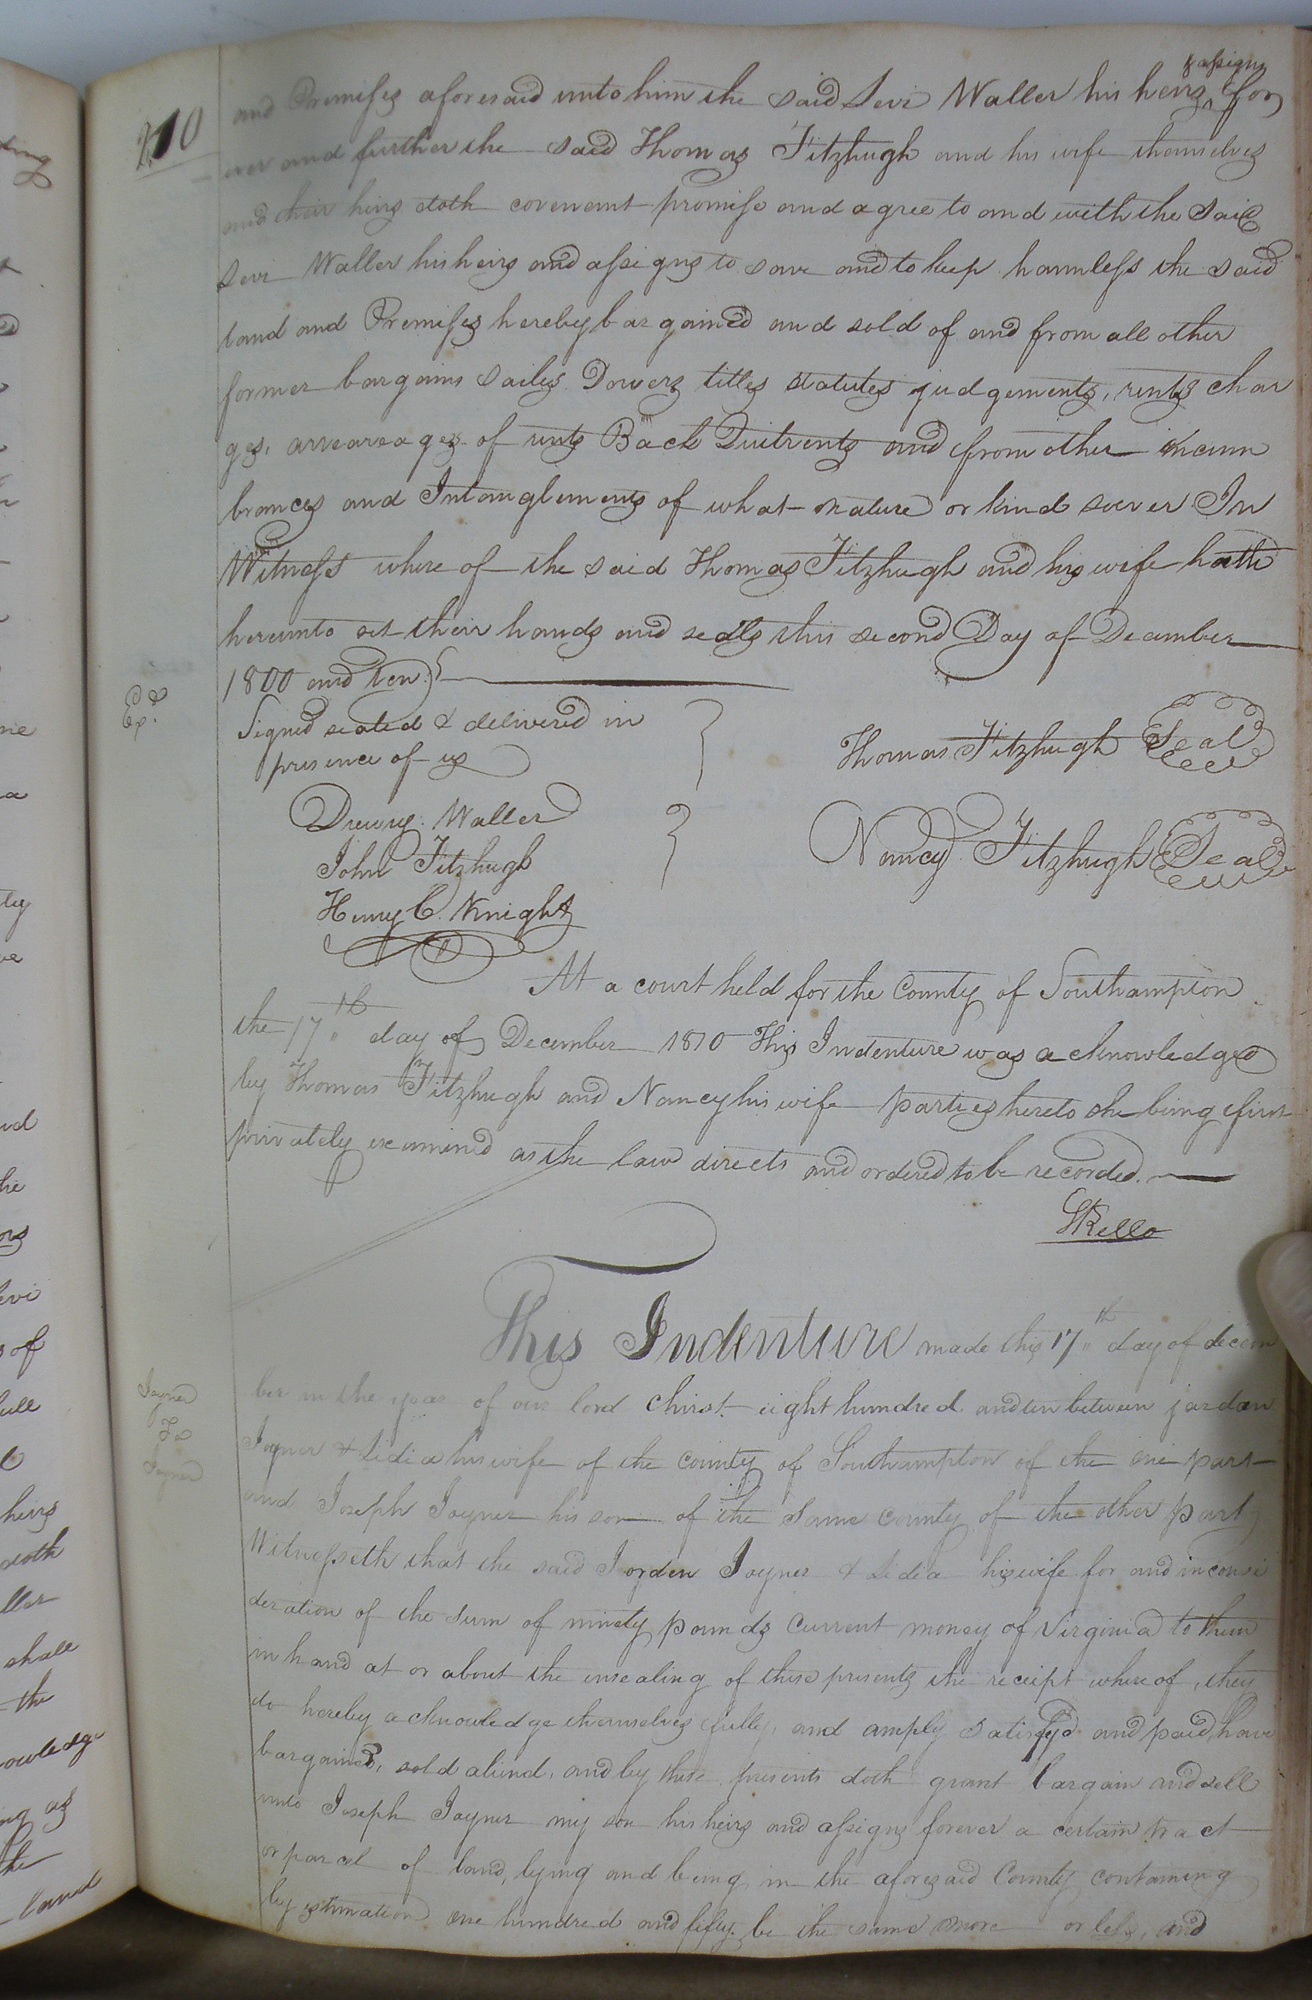 210
& assigns
and Premises aforesaid unto him the said Levi Waller his heirs for
ever and further the said Thomas Fitzhugh and his wife themselves
and their heirs doth covenant promise and agree to and with the Said
Levi Waller his heirs and assigns to save and to keep harmless the said
land and Premises hereby bargained and sold of and from all other
former bargains Sailes Dowers titles statutes judgements, rents char
ges, arrearages of rents Back Quitrents and from other incum
brances and Intanglements of what nature or kind soever In
Witness where of the said Thomas Fitzhugh and his wife hath
hereunto set their hands and seals this second Day of December
1800 and ten
Exd
Signed sealed & delivered in
presence of us
Thomas Fitzhugh Seal
Drewry Waller
John Fitzhugh
Nancy Fitzhugh Seal
Henry C. Knight
At a court held for the County of Southampton
the 17th day of December 1810 This Indenture was acknowledged
by Thomas Fitzhugh and Nancy his wife parties hereto she being first
privately examined as the law directs and ordered to be recorded.
SKello
This Indenture made this 17th day of decem
Joyner
To
Joyner
ber in the year of our lord Christ eight hundred and ten between jordan
Joyner & Lidia his wife of the county of Southampton of the one part
and Joseph Joyner his son of the Same county of the other part
Witnesseth that the said Jorden Joyner & Lidia his wife for and in consi
deration of the sum of ninety pounds Current money of Virginia to them
in hand at or about the ensealing of these presents the receipt where of, they
do hereby acknowledge themselves fully, and amply Satisfyd and paid, have
bargained, sold aliend, and by these presents doth grant bargain and sell
unto Joseph Joyner my son his heirs and assigns forever a certain tract
or parcel of land, lying and being in the aforesaid County containing
by estimation one hundred and fifty be the same more or less, and